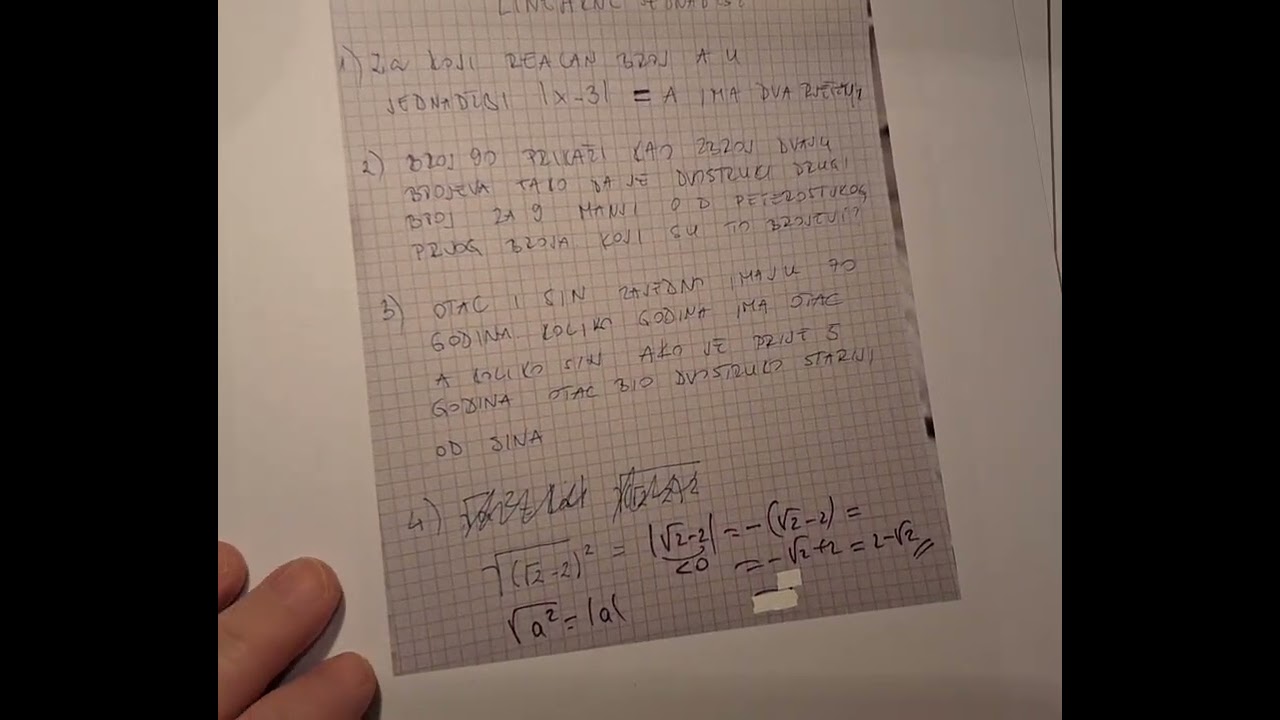 LINEARNE JEDNADŽBE
1) Za KOJI REALAN BROJ A U
JEDNADŽBI |x-3| = A IMA DVA RJEŠENJA
2) BROJ 90 PRIKAŽI KAO ZBROJ DVAJU
BROJEVA TAKO DA JE DVOSTRUKI DRUGI
BROJ ZA 9 MANJI OD PETEROSTUKOG
PRVOG BROJA KOJI SU TO BROJEVI?
3) OTAC I SIN ZAJEDNO IMAJU 70
GODINA KOLIKO GODINA IMA OTAC
A KOLIKO SIN AKO JE PRIJE 5
GODINA OTAC BIO DVOSTRUKO STARIJI
OD SINA
4)
√(√2-2)² = |√2-2| = -(√2-2) =
<0 = -√2+2 = 2-√2
√a² = |a|